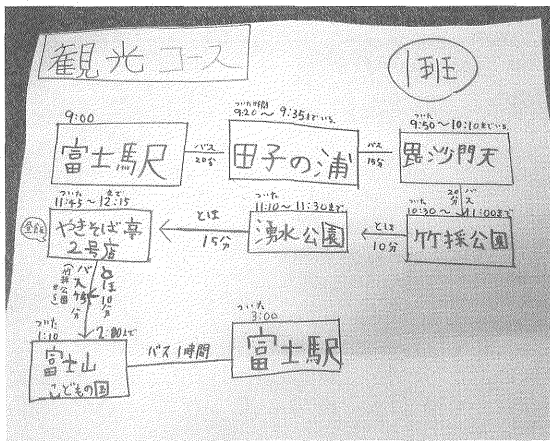 観光コース
1班
9:00
富士駅
バス
20分
ついた時間
9:20～9:35までいる。
田子の浦
バス
15分
ついた
9:50～10:10までいる。
毘沙門天
バス
20分
ついた
10:30～11:00まで
竹採公園
とほ
10分
ついた
11:10～11:30まで
湧水公園
とほ
15分
ついた まで
11:45～12:15
やきそば亭
2号店
昼飯
とほ10分
(竹採公園から)
ついた
1:10
2:00まで
富士山
こどもの国
バス1時間
ついた
3:00
富士駅